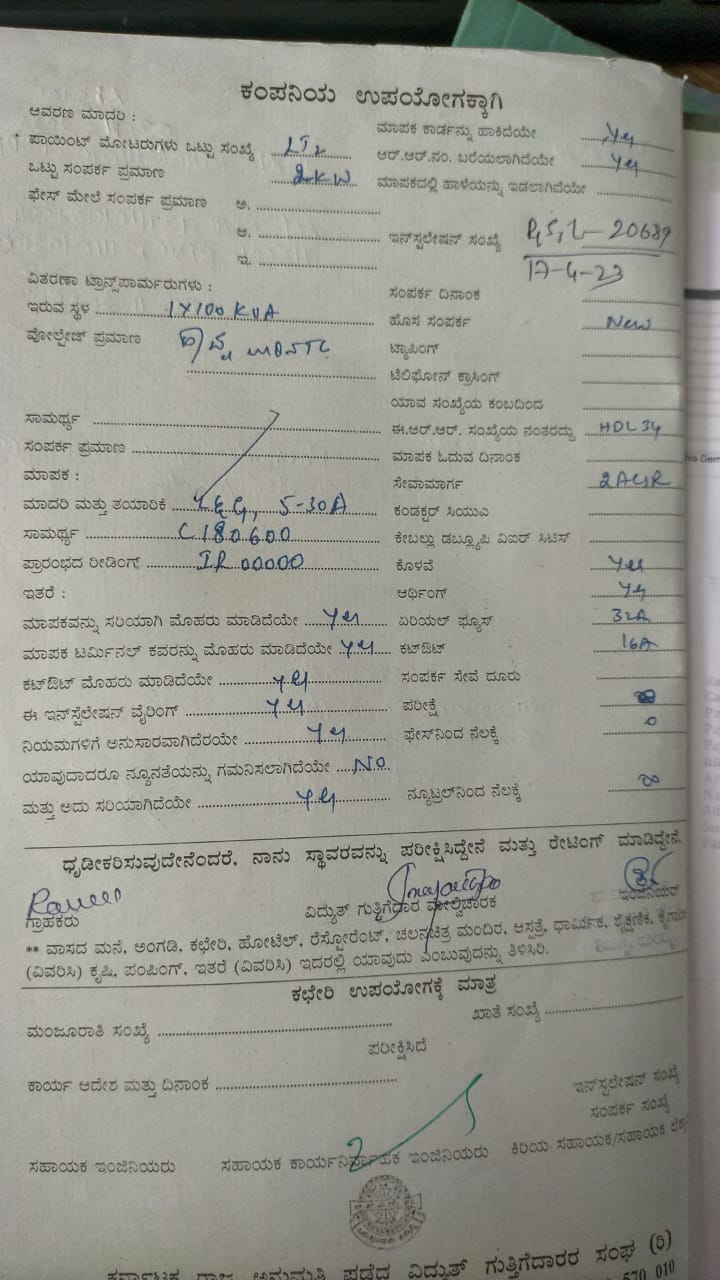 ಕಂಪನಿಯ ಉಪಯೋಗಕ್ಕಾಗಿ
ಆವರಣ ಮಾದರಿ :
ಮಾಪಕ ಕಾರ್ಡನ್ನು ಹಾಕಿದೆಯೇ Yes
ಪಾಯಿಂಟ್ ಮೋಟರುಗಳು ಒಟ್ಟು ಸಂಖ್ಯೆ LT2
ಆರ್.ಆರ್.ನಂ. ಬರೆಯಲಾಗಿದೆಯೇ Yes
ಒಟ್ಟು ಸಂಪರ್ಕ ಪ್ರಮಾಣ 2KW
ಮಾಪಕದಲ್ಲಿ ಹಾಳೆಯನ್ನು ಇಡಲಾಗಿದೆಯೇ
ಫೇಸ್ ಮೇಲೆ ಸಂಪರ್ಕ ಪ್ರಮಾಣ ಅ.
ಆ.
ಇನ್‌ಸ್ಟಲೇಷನ್ ಸಂಖ್ಯೆ 20689
ಇ.
17-4-23
ವಿತರಣಾ ಟ್ರಾನ್ಸ್‌ಪಾರ್ಮರುಗಳು :
ಸಂಪರ್ಕ ದಿನಾಂಕ
ಇರುವ ಸ್ಥಳ 1X100 KVA
ಹೊಸ ಸಂಪರ್ಕ New
ವೋಲ್ಟೇಜ್ ಪ್ರಮಾಣ
ಟ್ಯಾಪಿಂಗ್
ಟೆಲಿಫೋನ್ ಕ್ರಾಸಿಂಗ್
ಯಾವ ಸಂಖ್ಯೆಯ ಕಂಬದಿಂದ
ಸಾಮರ್ಥ್ಯ
ಈ.ಆರ್.ಆರ್. ಸಂಖ್ಯೆಯ ನಂತರದ್ದು HDL 34
ಸಂಪರ್ಕ ಪ್ರಮಾಣ
ಮಾಪಕ ಓದುವ ದಿನಾಂಕ
ಮಾಪಕ :
ಸೇವಾಮಾರ್ಗ
ಮಾದರಿ ಮತ್ತು ತಯಾರಿಕೆ 5-30A
ಕಂಡಕ್ಟರ್ ಸಿಯುಎ
ಸಾಮರ್ಥ್ಯ C180600
ಕೇಬಲ್ಲು ಡಬ್ಲ್ಯೂಪಿ ವಿಐರ್ ಸಿಟಿಸ್
ಪ್ರಾರಂಭದ ರೀಡಿಂಗ್ IR 00000
ಕೊಳವೆ Yes
ಇತರೆ :
ಆರ್ಥಿಂಗ್ Yes
ಮಾಪಕವನ್ನು ಸರಿಯಾಗಿ ಮೊಹರು ಮಾಡಿದೆಯೇ Yes
ಏರಿಯಲ್ ಫ್ಯೂಸ್ 32A
ಮಾಪಕ ಟರ್ಮಿನಲ್ ಕವರನ್ನು ಮೊಹರು ಮಾಡಿದೆಯೇ Yes
ಕಟ್‌ಔಟ್ 16A
ಕಟ್‌ಔಟ್ ಮೊಹರು ಮಾಡಿದೆಯೇ Yes
ಸಂಪರ್ಕ ಸೇವೆ ದೂರು
ಈ ಇನ್‌ಸ್ಟೆಲೇಷನ್ ವೈರಿಂಗ್ Yes
ಪರೀಕ್ಷೆ ∞
ನಿಯಮಗಳಿಗೆ ಅನುಸಾರವಾಗಿದೆರಯೇ Yes
ಫೇಸ್‌ನಿಂದ ನೆಲಕ್ಕೆ 0
ಯಾವುದಾದರೂ ನ್ಯೂನತೆಯನ್ನು ಗಮನಿಸಲಾಗಿದೆಯೇ No
ಮತ್ತು ಅದು ಸರಿಯಾಗಿದೆಯೇ Yes
ನ್ಯೂಟ್ರಲ್‌ನಿಂದ ನೆಲಕ್ಕೆ ∞
ಧೃಡೀಕರಿಸುವುದೇನೆಂದರೆ, ನಾನು ಸ್ಥಾವರವನ್ನು ಪರೀಕ್ಷಿಸಿದ್ದೇನೆ ಮತ್ತು ರೇಟಿಂಗ್ ಮಾಡಿದ್ದೇನೆ.
ಗ್ರಾಹಕರು
ವಿದ್ಯುತ್ ಗುತ್ತಿಗೆದಾರ ಮೇಲ್ವಿಚಾರಕ
ಇಂಜಿನಿಯರ್
** ವಾಸದ ಮನೆ, ಅಂಗಡಿ, ಕಛೇರಿ, ಹೋಟೆಲ್, ರೆಸ್ಟೋರೆಂಟ್, ಚಲನಚಿತ್ರ ಮಂದಿರ, ಆಸ್ಪತ್ರೆ, ಧಾರ್ಮಿಕ, ಶೈಕ್ಷಣಿಕ,
(ವಿವರಿಸಿ) ಕೃಷಿ, ಪಂಪಿಂಗ್, ಇತರೆ (ವಿವರಿಸಿ) ಇದರಲ್ಲಿ ಯಾವುದು ಎಂಬುವುದನ್ನು ತಿಳಿಸಿರಿ.
ಕಛೇರಿ ಉಪಯೋಗಕ್ಕೆ ಮಾತ್ರ
ಮಂಜೂರಾತಿ ಸಂಖ್ಯೆ
ಖಾತೆ ಸಂಖ್ಯೆ
ಪರೀಕ್ಷಿಸಿದೆ
ಕಾರ್ಯ ಆದೇಶ ಮತ್ತು ದಿನಾಂಕ
ಇನ್‌ಸ್ಟಲೇಷನ್ ಸಂಖ್ಯೆ
ಸಂಪರ್ಕ ಸಂಖ್ಯೆ
ಸಹಾಯಕ ಇಂಜಿನಿಯರು
ಸಹಾಯಕ ಕಾರ್ಯನಿರ್ವಾಹಕ ಇಂಜಿನಿಯರು
ಕಿರಿಯ ಸಹಾಯಕ/ಸಹಾಯಕ
ಕರ್ನಾಟಕ ರಾಜ್ಯ ಅನುಮತಿ ಪಡೆದ ವಿದ್ಯುತ್ ಗುತ್ತಿಗೆದಾರರ ಸಂಘ (ರಿ)
570 010